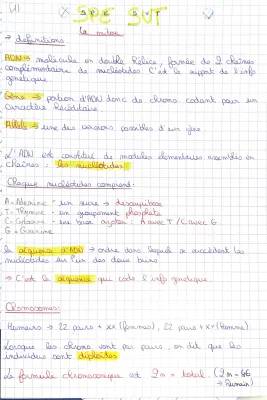 SPE SVT
La mitose
→ définitions
ADN → molécule en double hélice, formée de 2 chaînes
complémentaires de nucléotides. C'est le support de l'info
génétique
Gène → portion d'ADN donc de chromo codant pour un
caractère héréditaire
Allèle → une des versions possibles d'un gène
L'ADN est constitué de modules élémentaires assemblés en
chaînes : les nucléotides
Chaque nucléotides comprend :
A = Adénine - un sucre → désoxyribose
T = Thymine - un groupement phosphate
C = Cytosine - une base azotée : A avec T / C avec G
G = Guanine
La séquence d'ADN → ordre dans lequel se succèdent les
nucléotides sur l'un des deux brins
→ C'est la séquence qui code l'info génétique
Chromosomes :
Humains → 22 pairs + xx (femmes), 22 pairs + xy (Homme)
Lorsque les chromo sont par pairs, on dit que les
individus sont diploïdes
La formule chromosomique est 2n = total (2n = 46
→ humain)